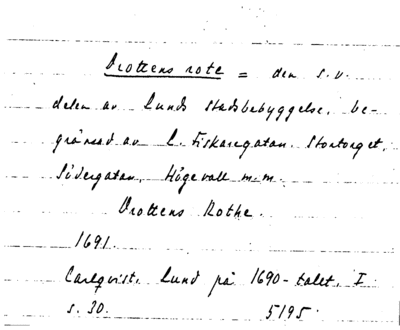 Drottens rote = den s.v.
delen av Lunds stadsbebyggelse, be-
gränsad av L. Fiskaregatan, Stortorget,
Södergatan, Högevall m.m.
Drottens Rothe.
1691.
Carlqvist, Lund på 1690-talet, I
s. 30. 5195